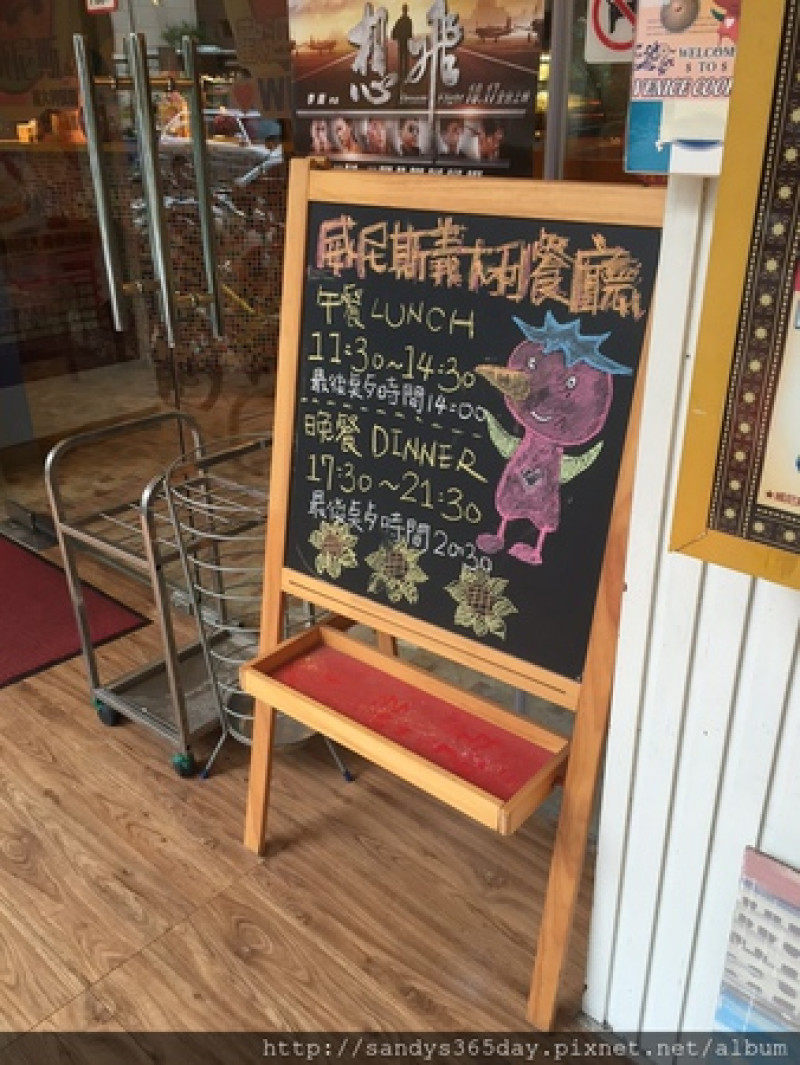 想飛
Dream Flight 10.17
WELCOME
VENICE
威尼斯義大利餐廳
午餐 LUNCH
11:30~14:30
最後點餐時間14:00
晚餐 DINNER
17:30~21:30
最後點餐時間20:30
http://sandys365day.pixnet.net/album